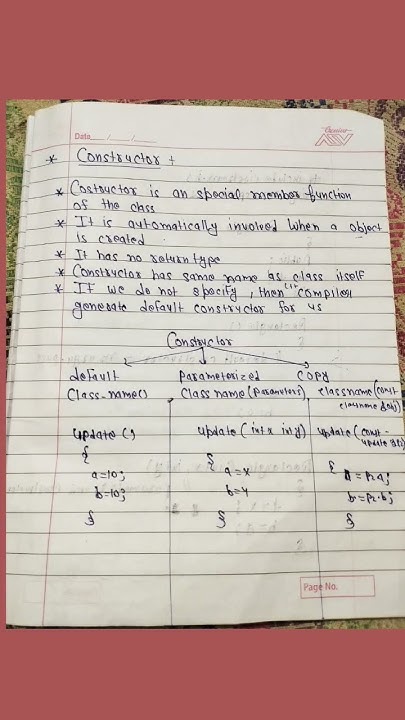 Data___/___/___
* Constructor +
* Costructor is an special member function
of the class
* It is automatically involved when a object
is created
* It has no return type
* Constructor has same name as class itself
* If we do not specify, then compiler
generate default constructor for us
Constructor
default
Class-name()
update ()
{
a=10;
b=10;
}
Parameterized
Class name (Parameters)
update (int x int y)
{
a = x
b = y
}
COPY
classname (const
classname &obj)
update (const
update
{
a = p2.a;
b = p2.b;
}
Page No.